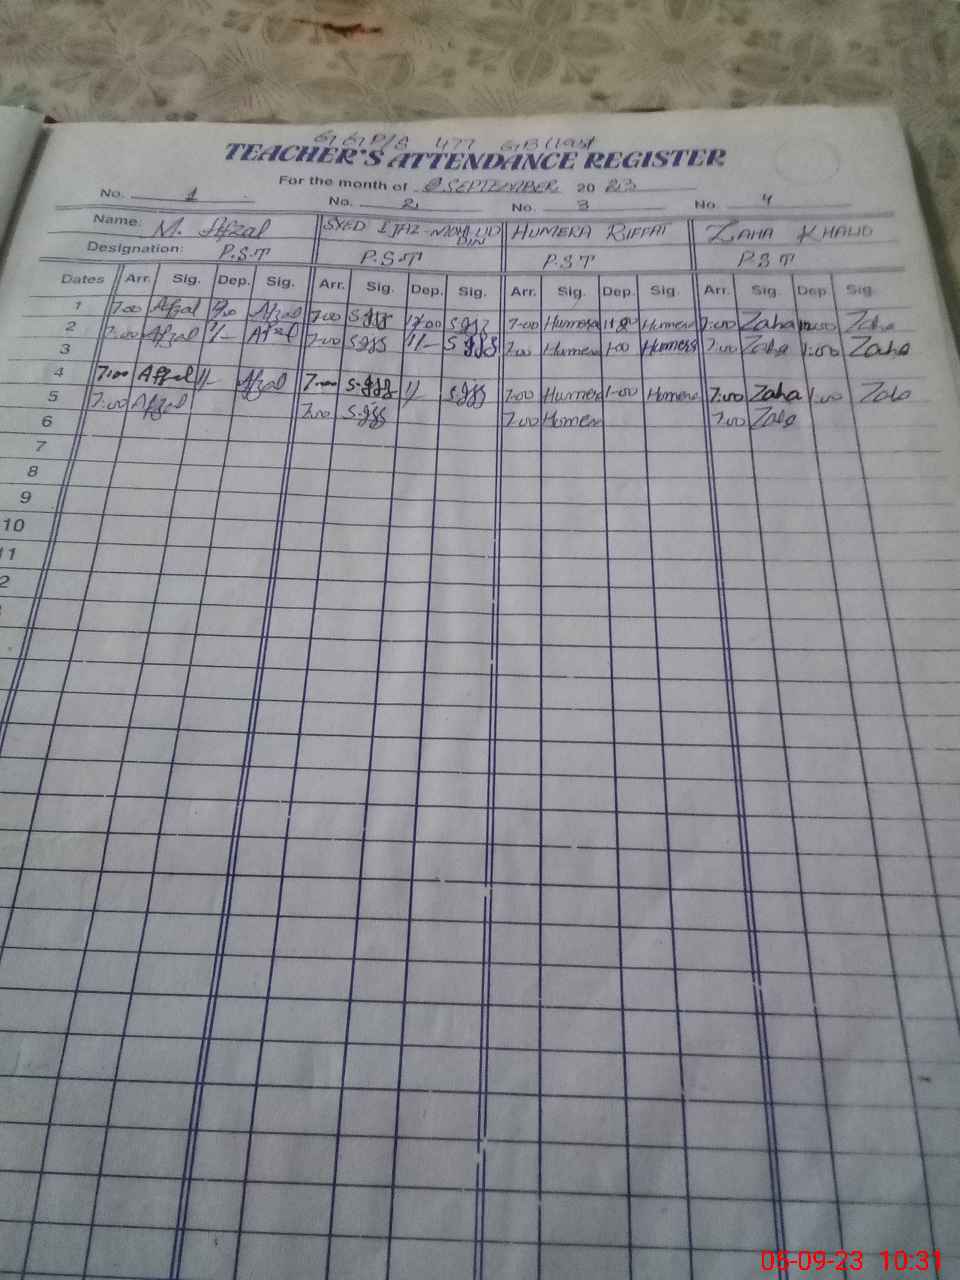 GGP/S 477 GB (1951
TEACHER'S ATTENDANCE REGISTER
For the month of SEPTEMBER 2023
No. 1 No. 2 No. 3 No. 4
Name: M. Afzal SYED IJAZ-MOHI-UD DIN HUMERA RIFFAT ZAHA KHALID
Designation: P.S.T P.S.T P.S.T P.S.T
Dates Arr. Sig. Dep. Sig. Arr. Sig. Dep. Sig. Arr. Sig. Dep. Sig. Arr. Sig. Dep. Sig.
1 7.00 Afzal Afzal 7.00 7-00 Humera Humera 7:00 Zaha Zaha
2 7:00 Afzal 1/- Afzal 7:00 1/- 7.00 Humera 1.00 Humera 7:00 Zaha 1:00 Zaha
3
4 7:00 Afzal 1/- Afzal 7:00 1/- 7.00 Humera 1-00 Humera 7:00 Zaha 1:00 Zaha
5 7:00 Afzal 7:00 7.00 Humera 7:00 Zaha
6
7
8
9
10
11
2
05-09-23 10:31